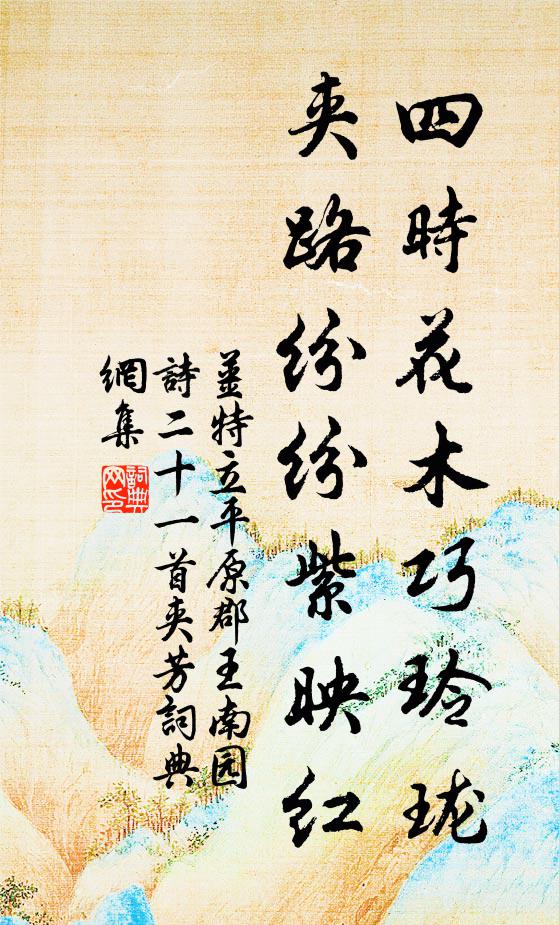 四時花木巧玲珑
夹路纷纷紫映红
姜特立平原郡王南园
詩二十一首夹芳詞典
網集
詞典网印